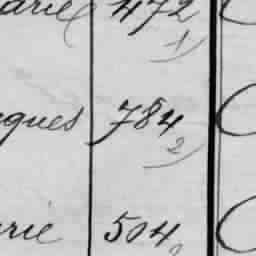 arie 472
1)
ques 784
2)
rie 504